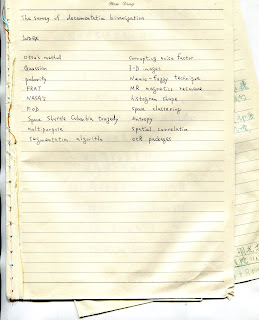 The Survey of documentation binarization
Image
Otsu's method Corrupting noise factor
Gaussian 2-D images
polarity Neuro-fuzzy technique
FRAT MR magnetics
NASA's histogram shape
F.O.D space clustering
Space Shuttle Columbia tragedy Entropy
multi-purpose Spatial correlation
segmentation algorithm OCR packages